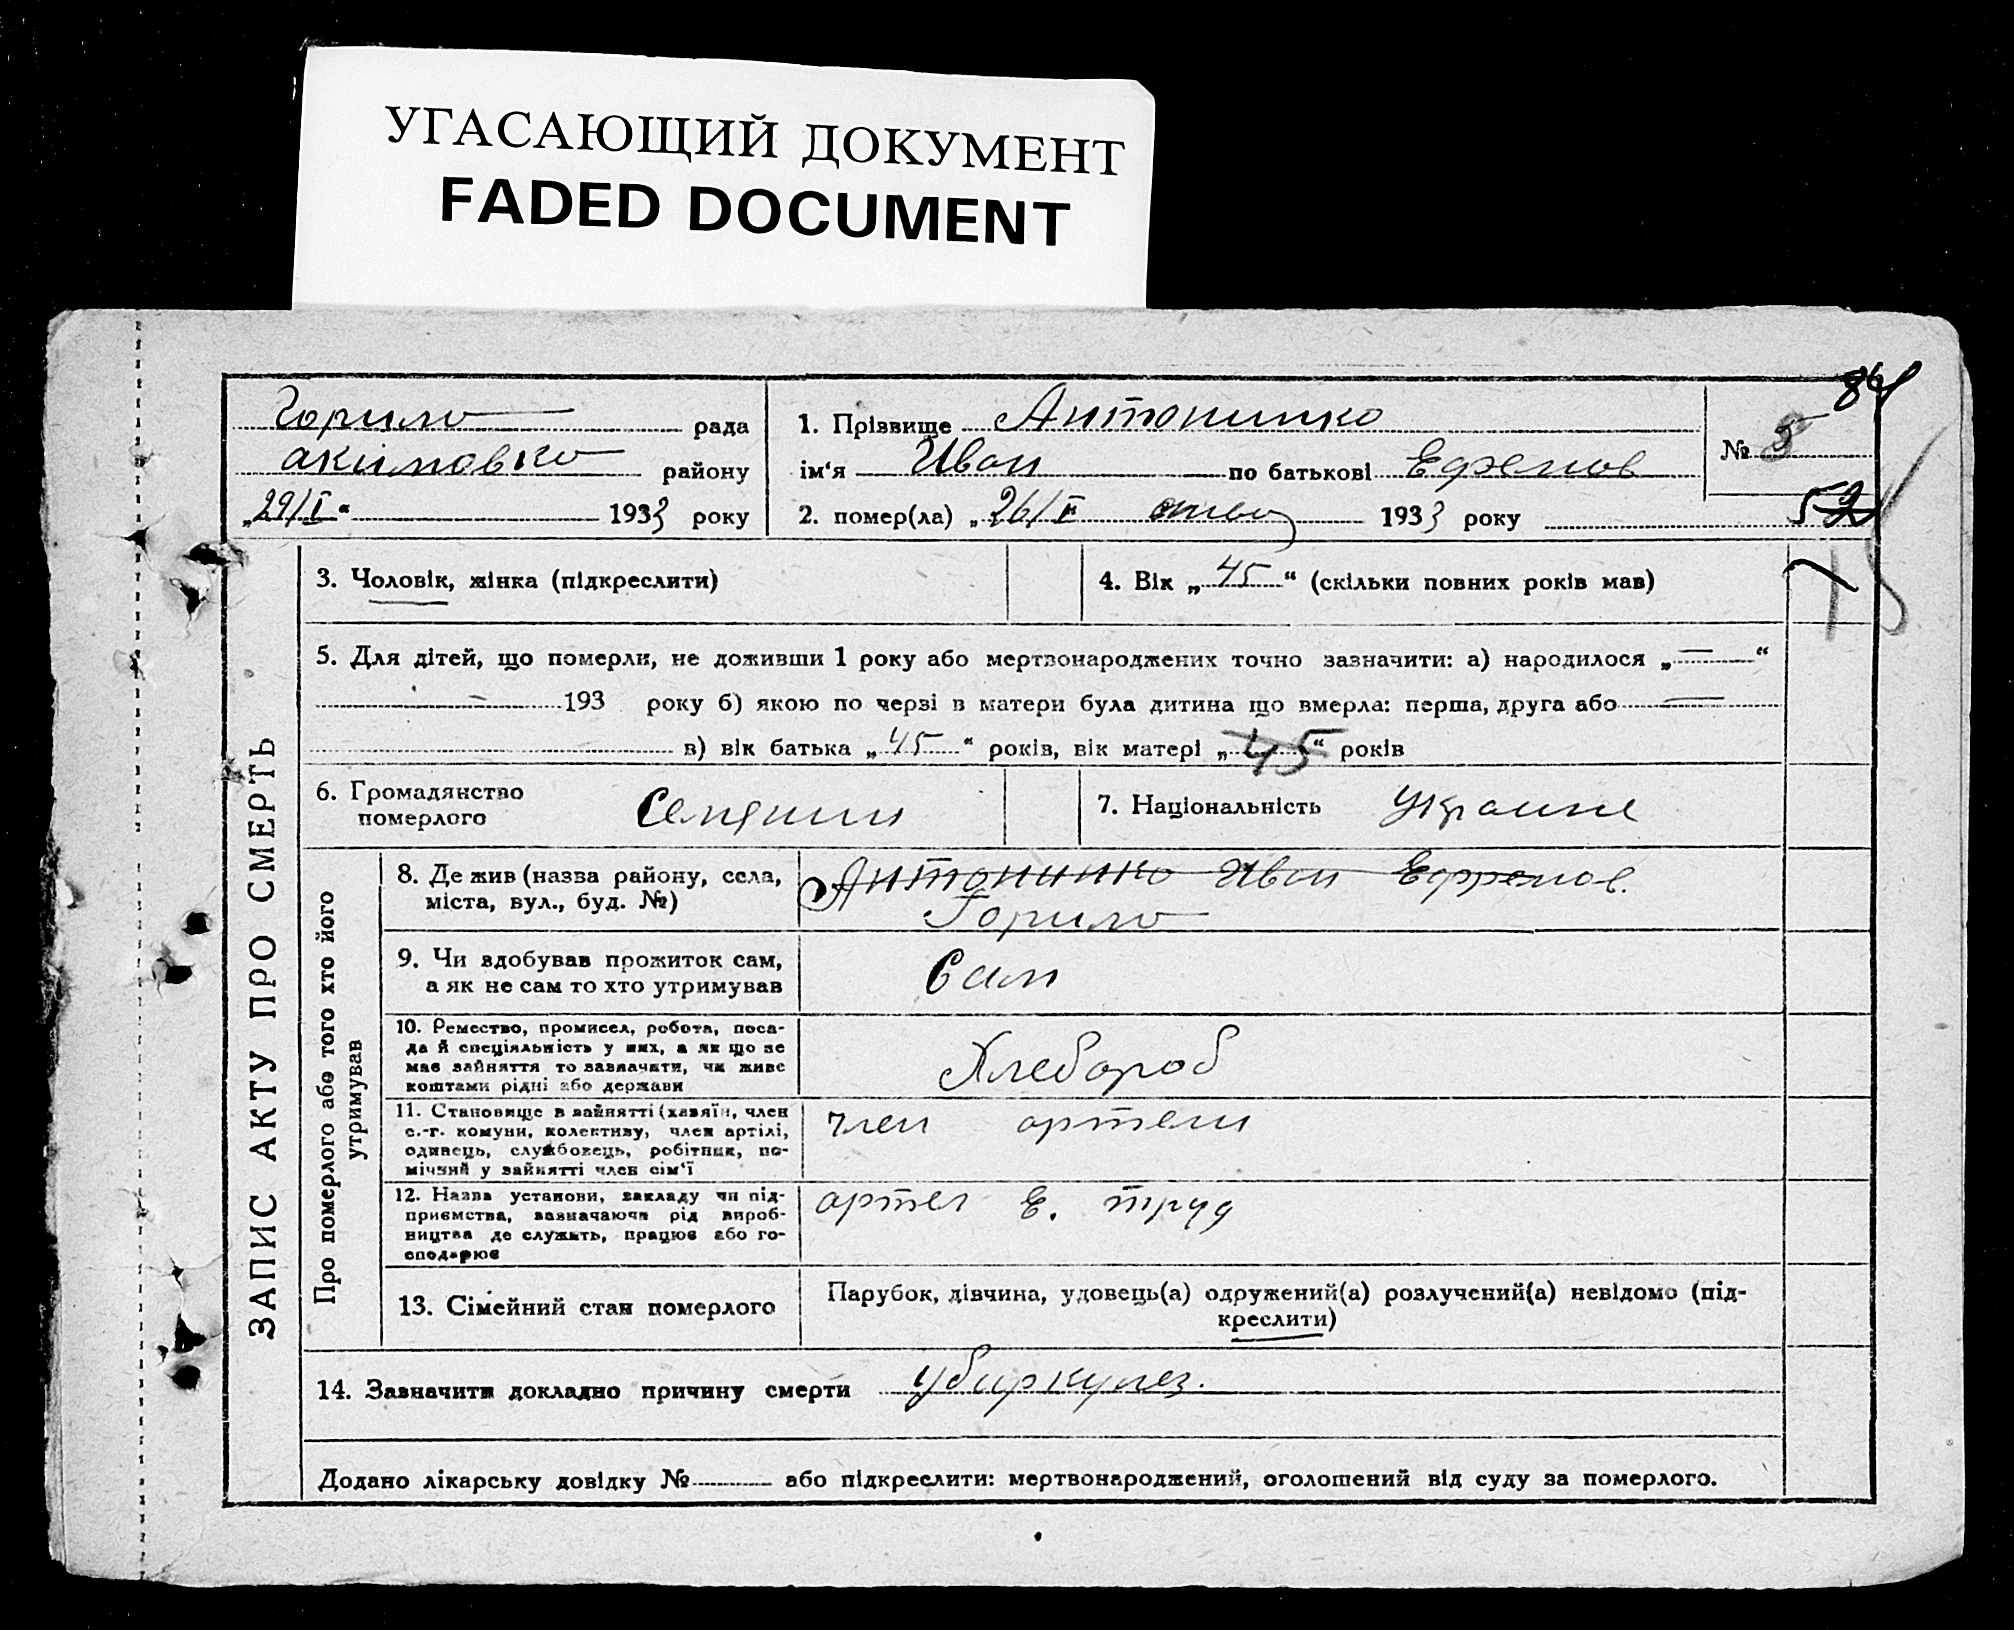 УГАСАЮЩИЙ ДОКУМЕНТ
FADED DOCUMENT
84
Горило рада
акимовко району
„29/I“ 1933 року
1. Прізвище Антонинко
ім'я Иван по батькові Ефремов
2. помер(ла) „26/I 1933 року
№ 5
52
ЗАПИС АКТУ ПРО СМЕРТЬ
3. Чоловік, жінка (підкреслити)
4. Вік „45“ (скільки повних років мав)
5. Для дітей, що померли, не доживши 1 року або мертвонароджених точно зазначити: а) народилося „—“
— 193 року б) якою по черзі в матери була дитина що вмерла: перша, друга або —
в) вік батька „45“ років, вік матері „45“ років
6. Громадянство
померлого
Селянин
7. Національність Украине
Про померлого або того хто його
утримував
8. Де жив (назва району, села,
міста, вул., буд. №)
Антонинко Иван Ефремов.
Горило
9. Чи здобував прожиток сам,
а як не сам то хто утримував
Сам
10. Ремество, промисел, робота, поса-
да й спеціяльність у них, а як що не
має зайняття то зазначити, чи живе
коштами рідні або держави
Хлебороб
11. Становище в зайнятті (хазяїн, член
с.-г. комуни, колективу, член артілі,
одинець, службовець, робітник, по-
мічний у зайнятті член сім'ї
член артели
12. Назва установи, закладу чи під-
приємства, зазначаючи рід вироб-
ництва де служить, працює або го-
сподарює
артел Е. труд
13. Сімейний стан померлого
Парубок, дівчина, удовець(а) одружений(а) розлучений(а) невідомо (під-
креслити)
14. Зазначити докладно причину смерти убиркулез.
Додано лікарську довідку № або підкреслити: мертвонароджений, оголошений від суду за померлого.